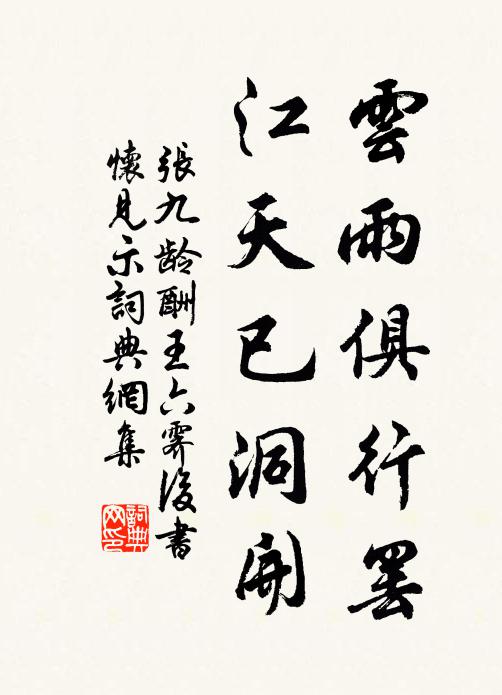 雲雨俱行罷
江天已洞開
張九齡酬王六霽後書
懷見示詞典網集
詞典
网印